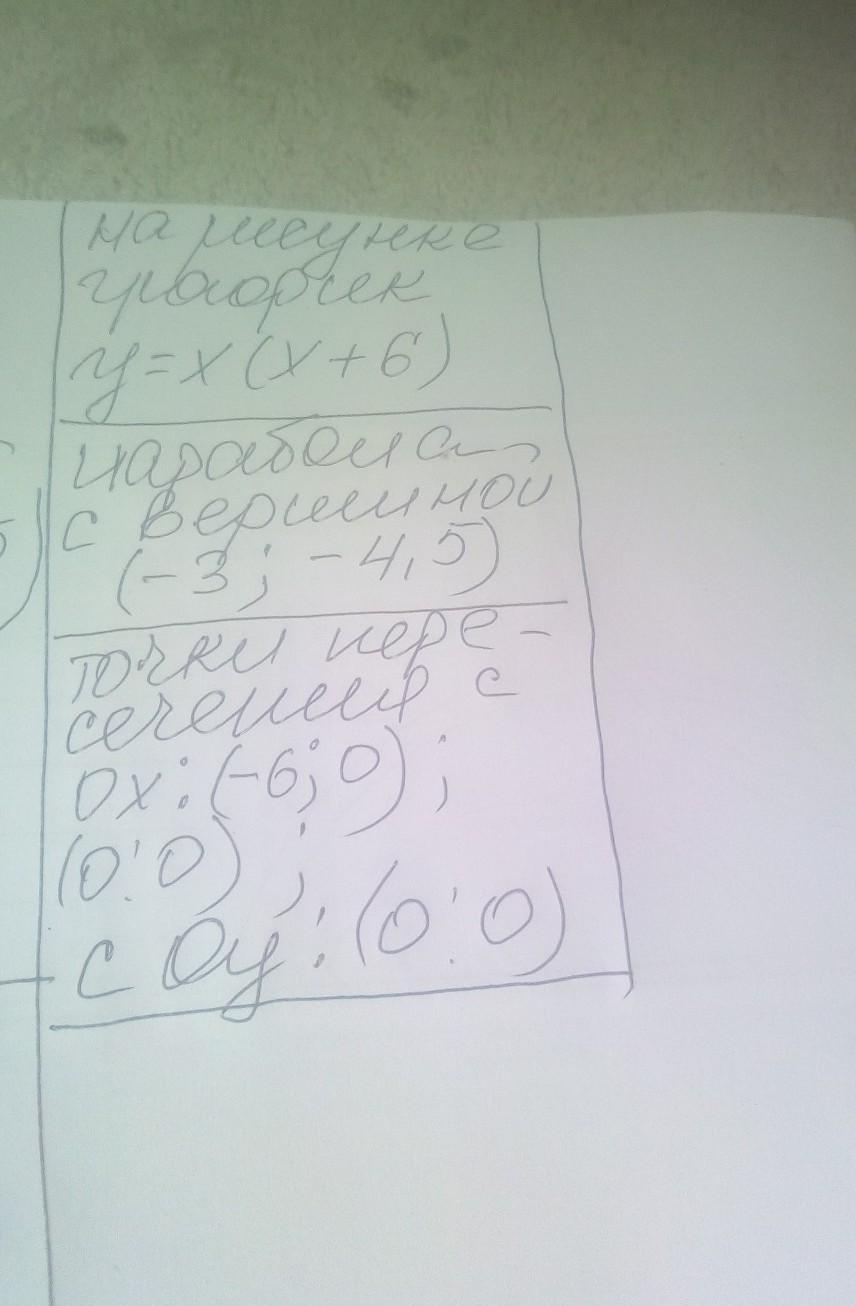 на рисунке
график
y=x(x+6)
парабола
с вершиной
(-3; -4,5)
точки пере-
сечения с
Ox: (-6; 0);
(0; 0);
с Oy: (0; 0)